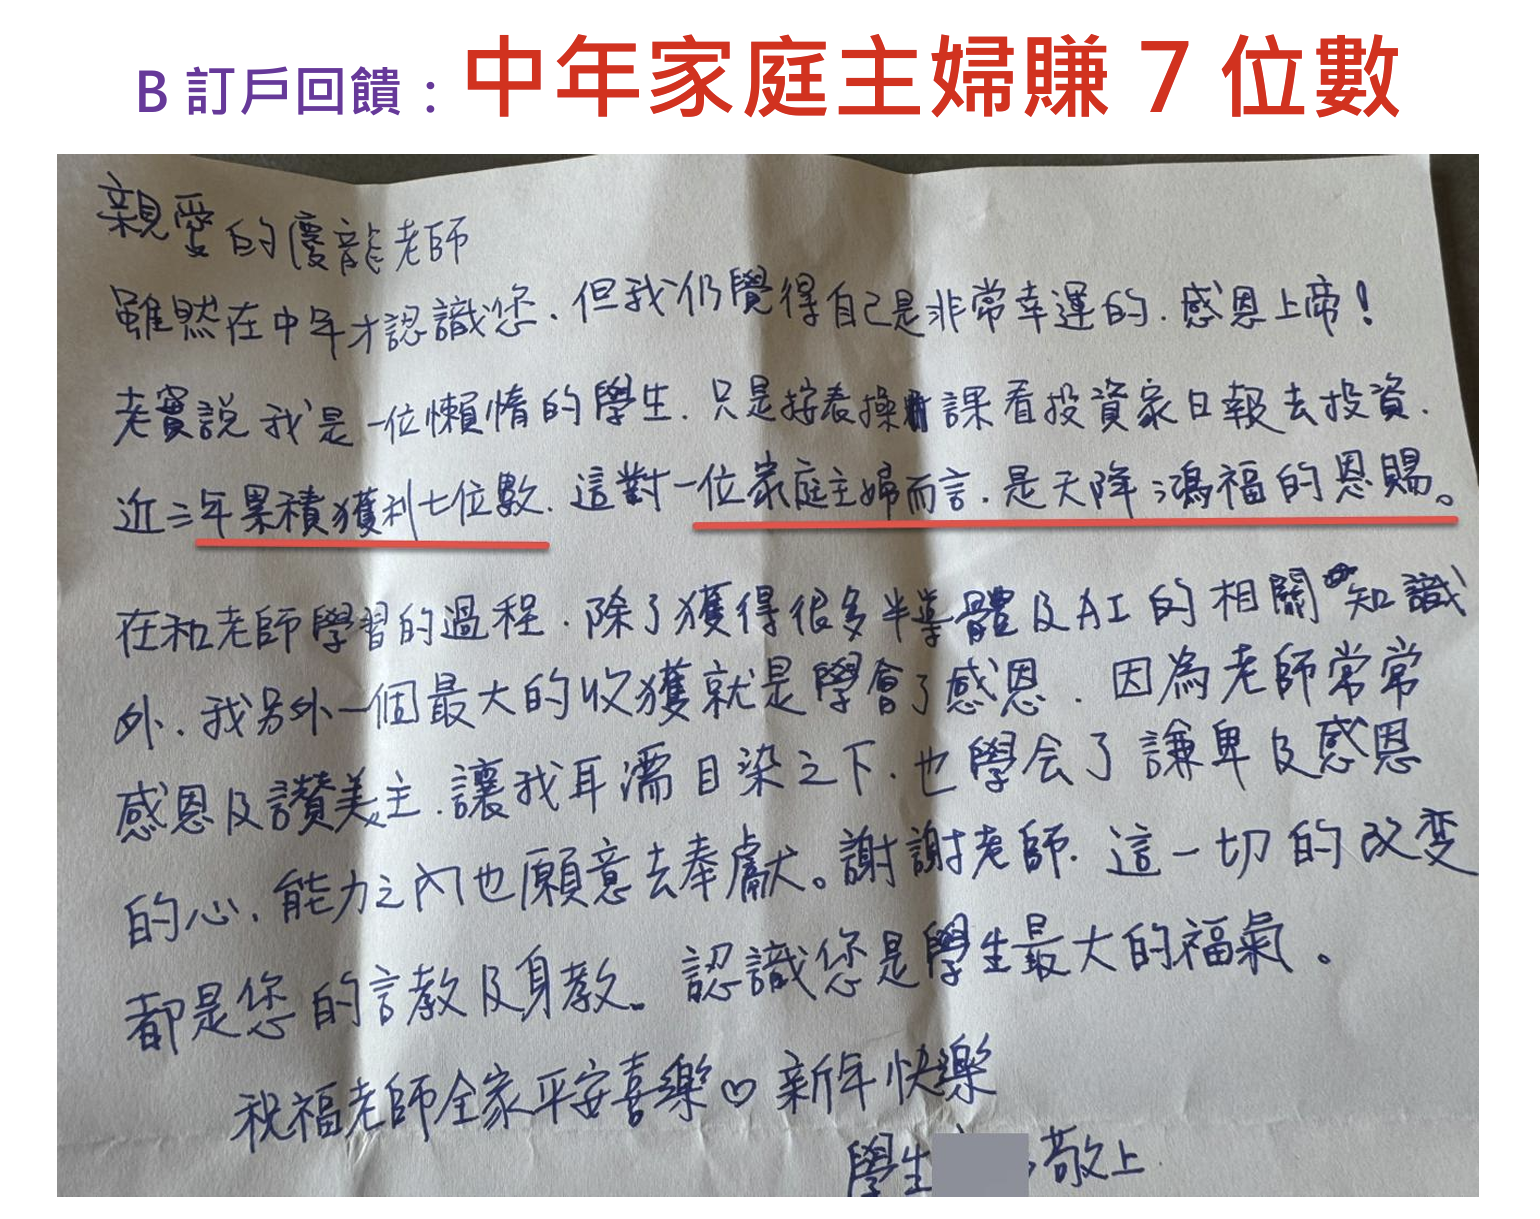 B 訂戶回饋：中年家庭主婦賺 7 位數
親愛的慶龍老師
雖然在中年才認識您，但我仍覺得自己是非常幸運的，感恩上帝！
老實說我是一位懶惰的學生，只是按表操課看投資家日報去投資，
近三年累積獲利七位數，這對一位家庭主婦而言，是天降鴻福的恩賜。
在和老師學習的過程，除了獲得很多半導體及AI的相關知識
外，我另外一個最大的收獲就是學會了感恩，因為老師常常
感恩及讚美主，讓我耳濡目染之下，也學会了謙卑及感恩
的心，能力之內也願意去奉獻。謝謝老師，這一切的改变
都是您的言教及身教。認識您是學生最大的福氣。
祝福老師全家平安喜樂♡新年快樂
學生 敬上